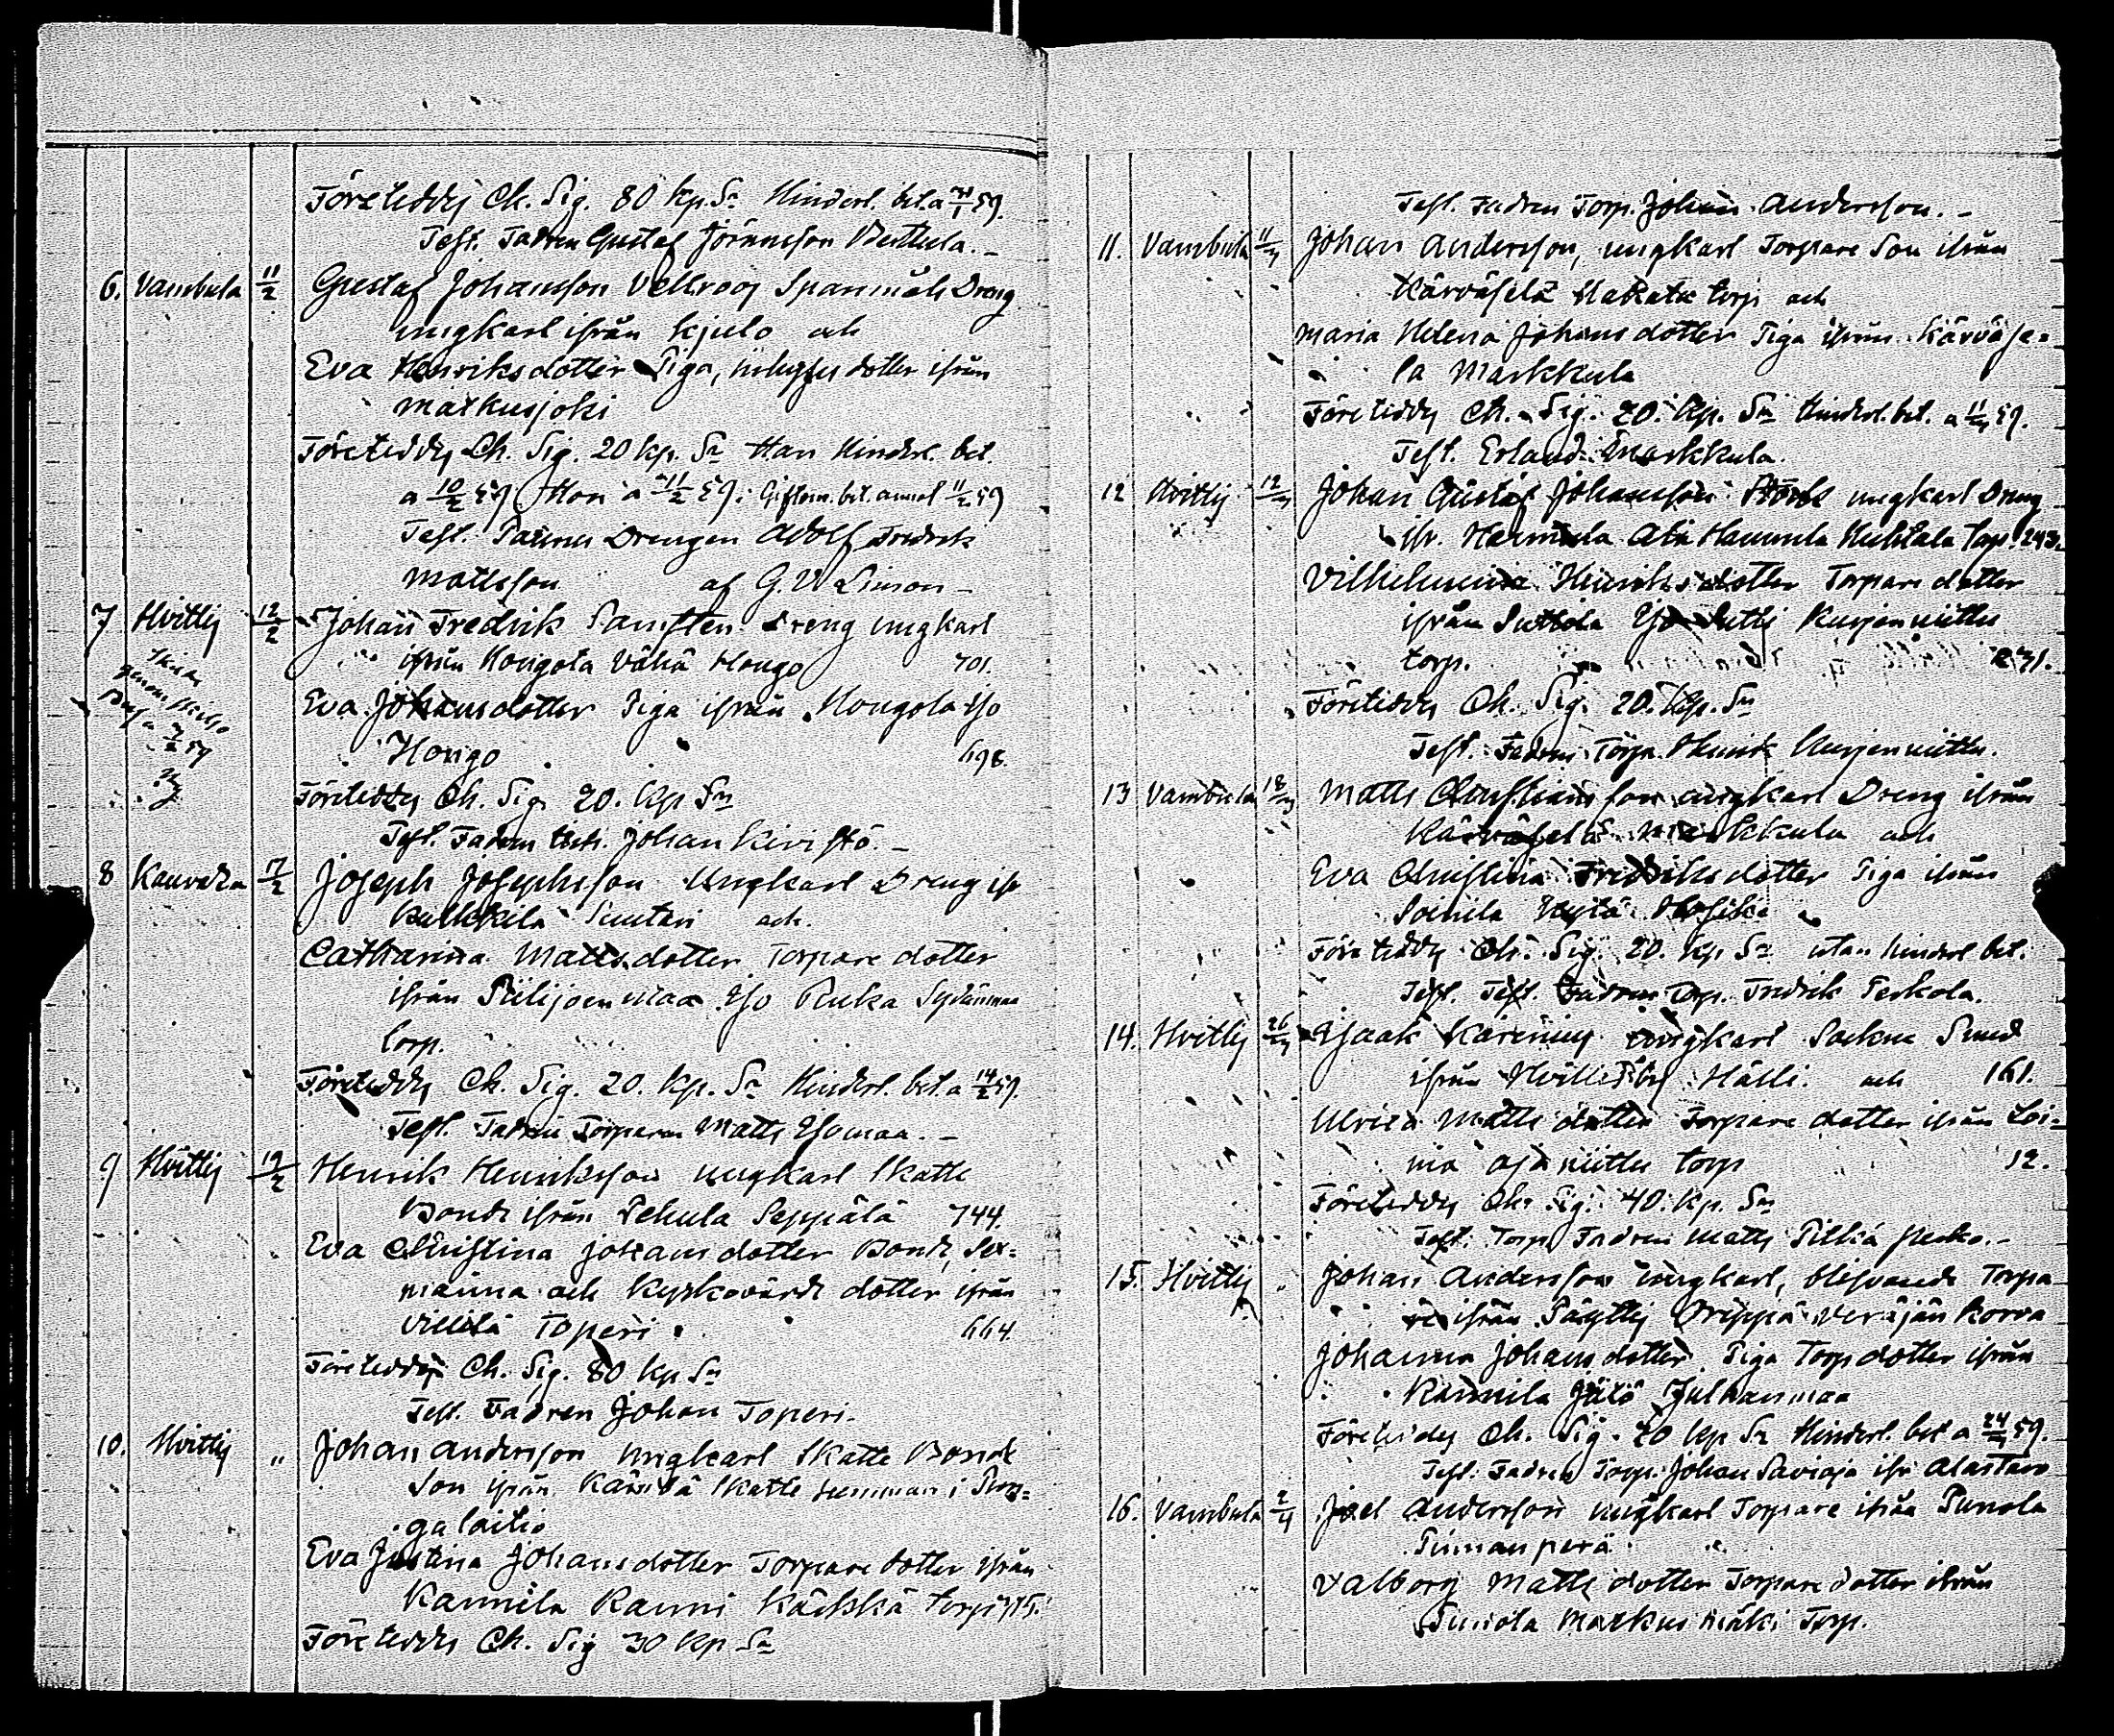 Företeddes Ch. Sig. 80 Kp. Sr Hinderl. bet. a 59.
Test. Fadren Gustaf Jöransson Berttula. –
6. Vambula 11/2 Gustaf Johansson Vellroos Spanmåls Dreng
ungkarl ifrån Kjulo och
Eva Henriksdotter Piga, dotter ifrån
Matkusjoki
Företeddes Ch. Sig. 20 Kp. Sr Han Hinderl. bet.
a 10/2 59 Hon a 11/2 59. Giftom. bet. 11/2 59
Test. Drengen Adolf Fredrik
Mattsson af G. W. Simon –
7 Hvittis 12/2 Johan Fredrik Dreng ungkarl
ifrån Hongola Vähä Hongo 701.
genom
59
Eva Johansdotter Piga ifrån Hongola Yso
Hongo 698.
Företeddes Ch. Sig. 20. Kp Sr
Test. Fadren Johan Kivistö. –
8 Kauvatsa 17/2 Joseph Josephsson Ungkarl Dreng ifr
Pukkila Suutari och
Catharina Mattsdotter Torpare dotter
ifrån Piilijoenmaa Yso Ruka Sydänmaa
torp.
Företeddes Ch. Sig. 20. Kp. Sr Hinderl. bet. a 14/2 59.
Test. Fadren Torparen Matts Ysomaa. –
9 Hvittis 19/2 Henrik Henriksson ungkarl Skatte
Bonde ifrån Sehula Seppälä 744.
Eva Christina Johansdotter Bonde, Sex=
manna och Kyrkovärds dotter ifrån
Toperi. 664.
Företeddes Ch. Sig. 80 Kp Sr
Test. Fadren Johan Toperi.
10. Hvittis „ Johan Andersson ungkarl Skatte Bonde
Son ifrån Skatte hemman i Pun=
galaitio
Eva Justina Johansdotter Torpare dotter ifrån
Kannila Ranni torp 715.
Företeddes Ch. Sig 30 Kp Sr
Test. Fadren Torp. Johan Andersson. –
11. Vambula Johan Andersson, ungkarl Torpare Son ifrån
Kärväselä torp och
Maria Helena Johansdotter Piga ifrån Kärväse=
la Markkula
Företeddes Ch. Sig. 20. Kp. Sr Hinderl. bet. a 59.
Test. Erland Markkula.
12 Hvittis Johan Gustaf Johansson ungkarl Dreng
ifr. Hammula Ala Hammula Huhtala Torp. 243.
Vilhelmina Henriksdotter Torpare dotter
ifrån Suttola Yso Sutti Kurjenniittu
torp. 231.
Företeddes Ch. Sig. 20. Kp. Sr
Test. Fadren Torp. Henrik Kurjenniittu.
13 Vambula Matts Christiansson ungkarl Dreng ifrån
Kärväselä Markkula och
Eva Christina Fredriksdotter Piga ifrån
Soinila
Företeddes Ch. Sig. 20. Kp Sr utan Hinderl bet.
Test. Test. Fadren Torp. Fredrik Perkola.
14. Hvittis ungkarl Sockne Smed
ifrån Hvittisby Hälli. och 161.
Ulrica Matts dotter Torpare dotter ifrån Loi=
ma Ojaniittu torp 12.
Företeddes Ch. Sig. 40. Kp. Sr
Test. Torp. Fadren Matts
15. Hvittis „ Johan Andersson ungkarl, blifvande Torpa
re ifrån Päyttis Orippä Veräjän Korva
Johanna Johansdotter Piga Torp dotter ifrån
Kannila Julhanmaa
Företeddes Ch. Sig. 20 Kp Sr Hinderl. bet a 59.
Test. Fadren Torp. Johan Savioja ifr Alastaro
16. Vambula 2/4 Joel Andersson ungkarl Torpare ifrån Punola
Piinanperä
Valborg Matts dotter Torpare dotter ifrån
Punola Markusmäki Torp.